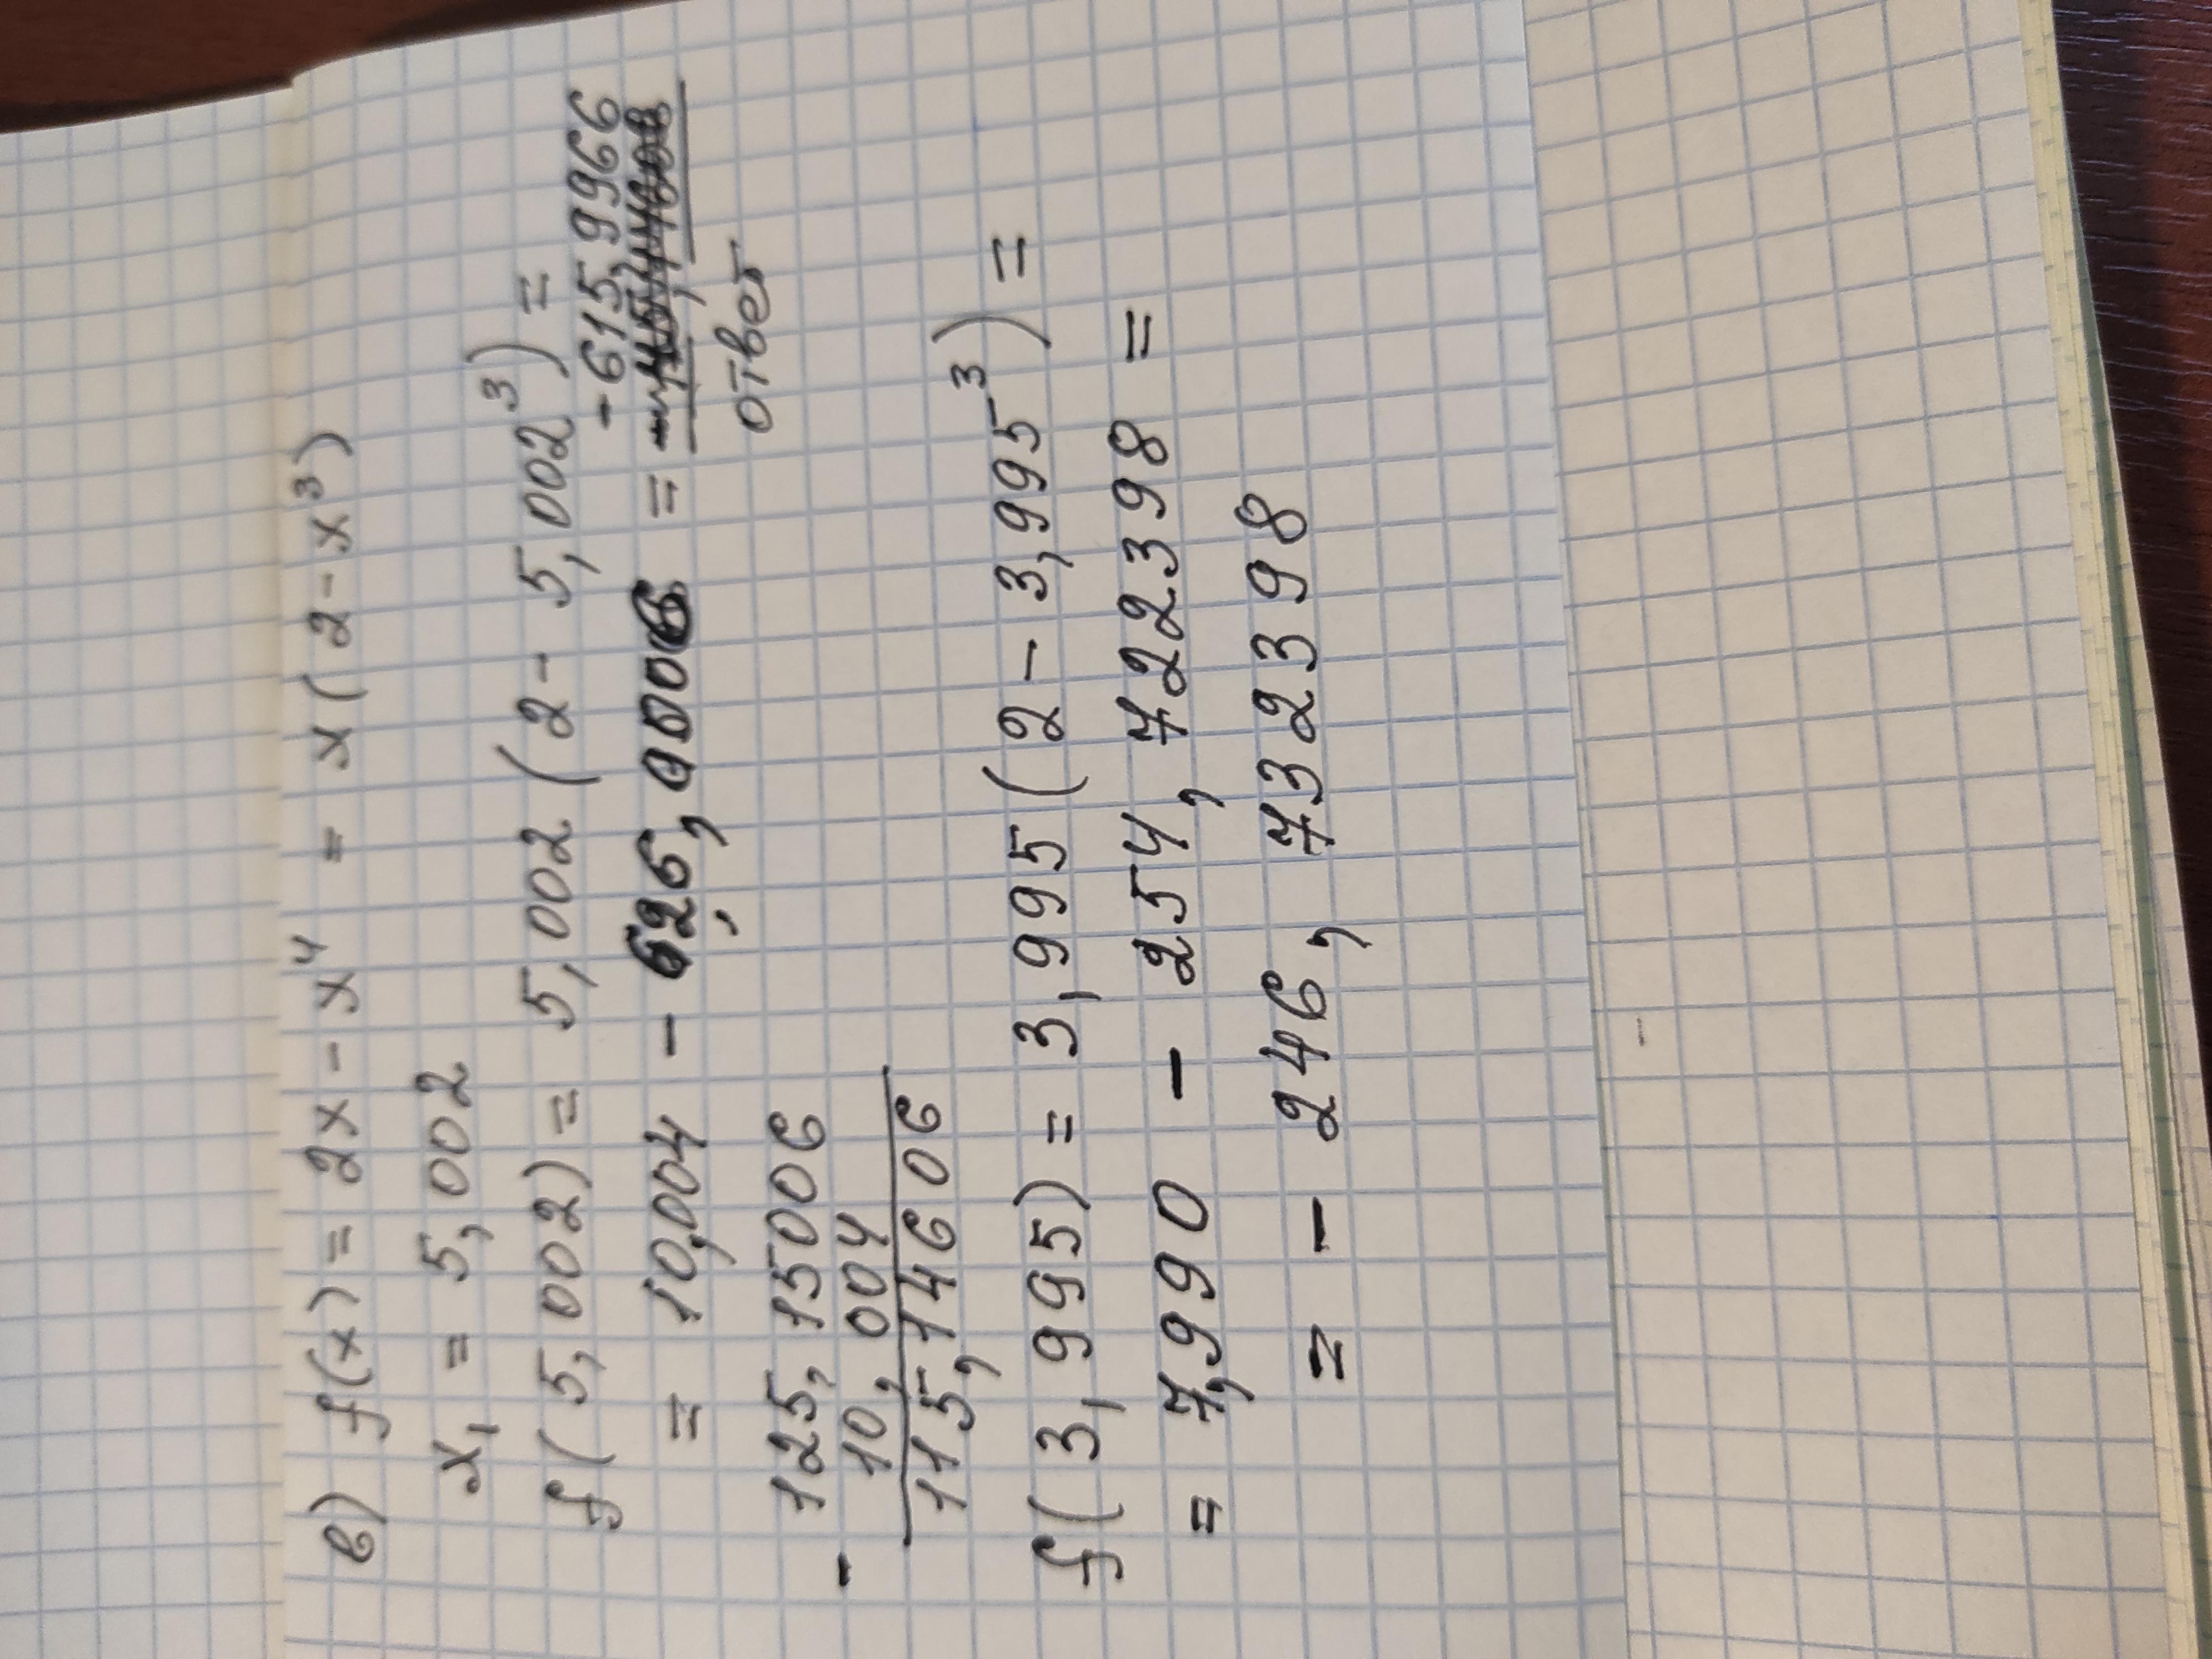 в) f(x) = 2x - x⁴ = x(2 - x³)
x₁ = 5,002
f(5,002) = 5,002(2 - 5,002³) =
= 10,004 - 626,0006 = -615,9966
ответ
- 125,15006
10,004
115,14606
f(3,995) = 3,995(2 - 3,995³) =
= 7,990 - 254,722398 =
= - 246,732398